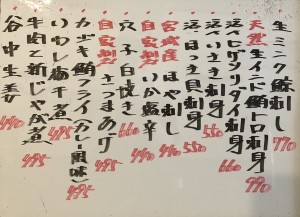 生ミンク鯨刺し 770
天然生インド鮪トロ刺身 770
活〆ヒゲソリダイ刺身 660
活〆いさき刺身 550
活ほっき貝刺身 550
宮城産ほや刺し 440
自家製いか塩辛 440
穴子白焼き 660
自家製さつまあげ 495
カジキ鮪フライ(カレー風味) 495
いわし梅干煮 495
牛肉と新じゃが煮 495
谷中生姜 440